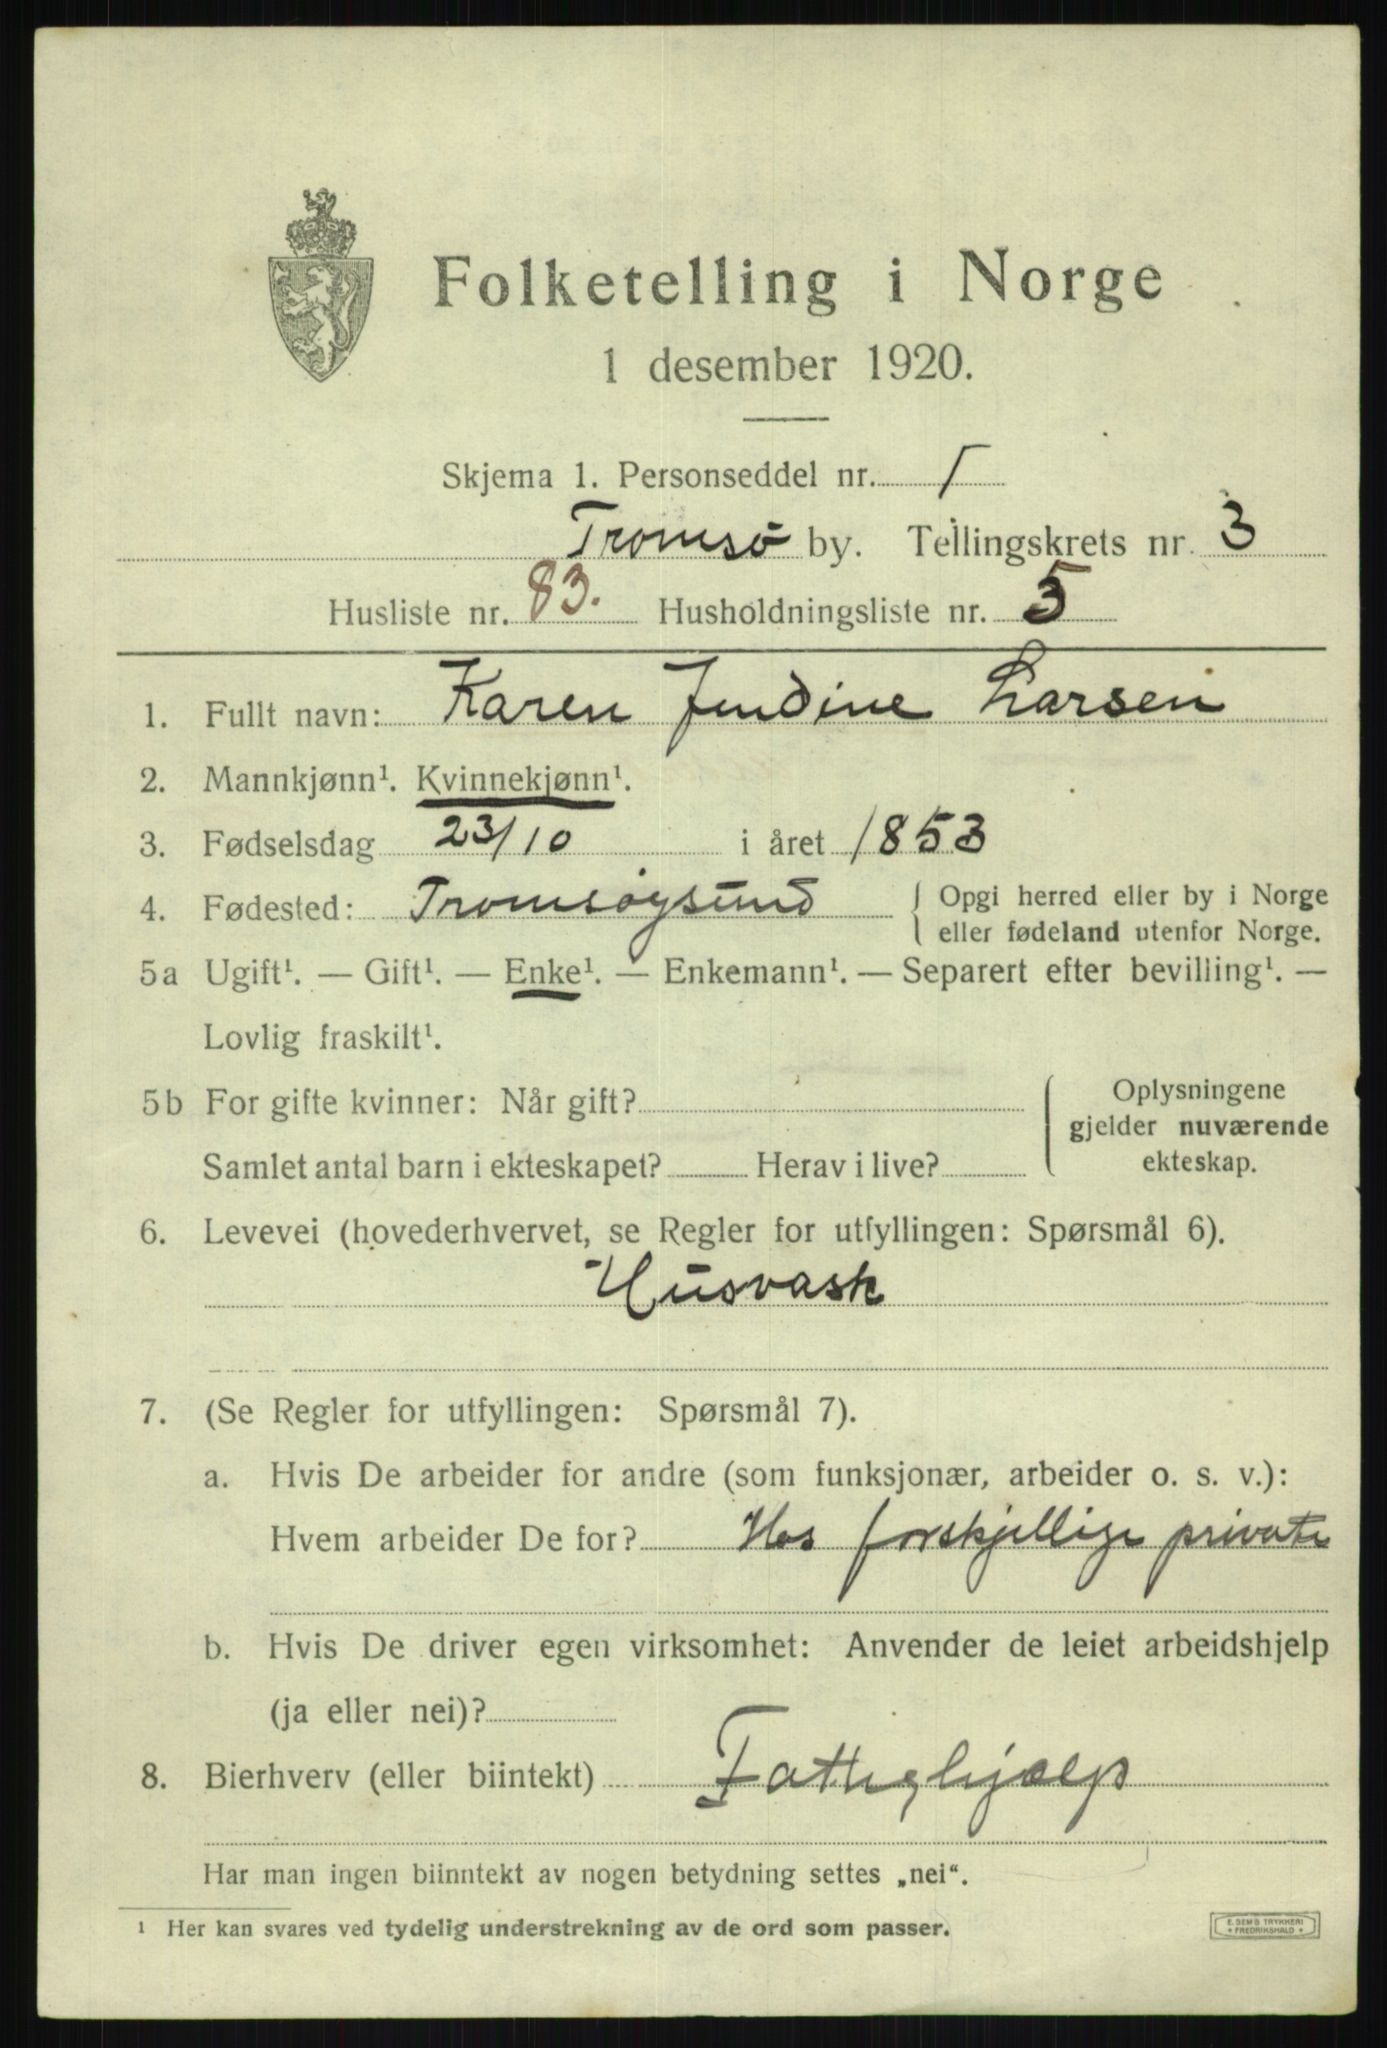 Folketelling i Norge
1 desember 1920.
Skjema 1. Personseddel nr. 1
Tromsø by. Tellingskrets nr. 3
Husliste nr. 83. Husholdningsliste nr. 5
1. Fullt navn: Karen Larsen
2. Mannkjønn¹. Kvinnekjønn¹.
3. Fødselsdag 23/10 i året 1853
4. Fødested: Tromsøysund { Opgi herred eller by i Norge
eller fødeland utenfor Norge.
5a Ugift¹. — Gift¹. — Enke¹. — Enkemann¹. — Separert efter bevilling¹. —
Lovlig fraskilt¹.
5b For gifte kvinner: Når gift?
Samlet antal barn i ekteskapet? Herav i live?
Oplysningene
gjelder nuværende
ekteskap.
6. Levevei (hovederhvervet, se Regler for utfyllingen: Spørsmål 6).
Husvask
7. (Se Regler for utfyllingen: Spørsmål 7).
a. Hvis De arbeider for andre (som funksjonær, arbeider o. s. v.):
Hvem arbeider De for? Hos forskjellige private
b. Hvis De driver egen virksomhet: Anvender de leiet arbeidshjelp
(ja eller nei)?
8. Bierhverv (eller biintekt) Fattighjælp
Har man ingen biinntekt av nogen betydning settes „nei“.
¹ Her kan svares ved tydelig understrekning av de ord som passer.
E. SEMS TRYKKERI
• FREDRIKSHALD •